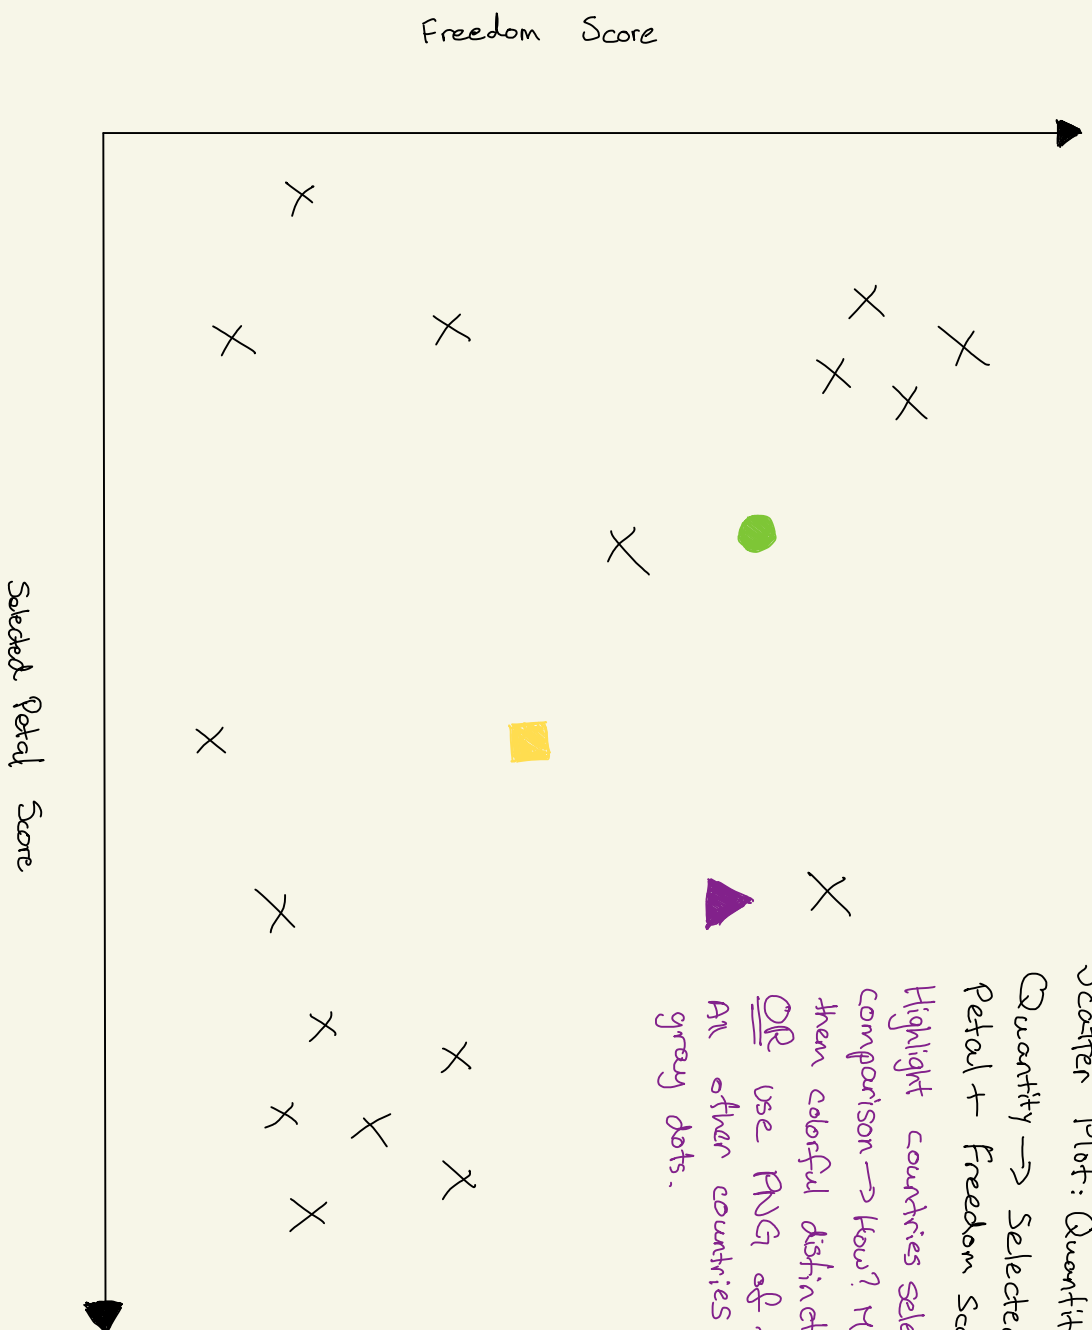 Freedom Score
Selected Petal Score
Scatter Plot:
Quantity → 
Petal + Freedom
Highlight countries
comparison → How?
them colorful
OR use PNG of
All other countries
gray dots.